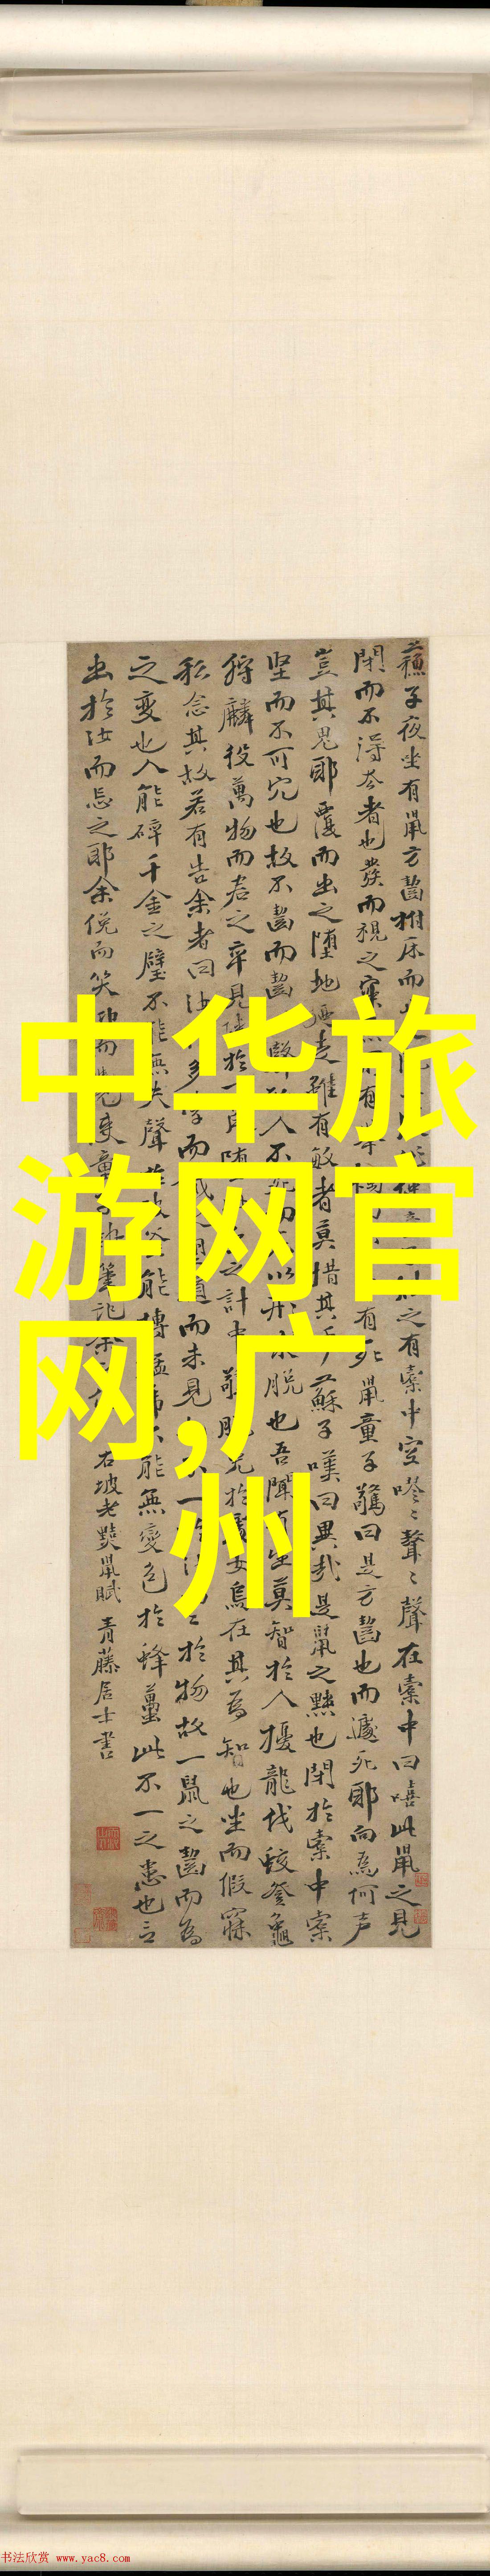 中华旅
游网官
网,广
州
蘓子夜坐有鼠方齧拊床而之有橐中空嘐々聱々聲在橐中曰嘻此鼠之見
閉而不得去者也發而視之有死鼠童子驚曰是方齧也而遽死耶向為何声
豈其鬼耶覆而出之墮地走雖有敏者莫措其手蘇子嘆曰異哉是鼠之黠也閉於橐中橐
堅而不可穴也故不齧而齧聲人不脫也吾聞有生莫智於人擾龍伐蛟登龜
狩麟役萬物而君之卒見使於墮之計中驚脫兔於處女烏在其為知也坐而假寐
私念其故若有告余者曰汝多學而而未見一於物故一鼠之齧而為
之變也人能碎千金之璧不能無失聲能搏猛不能無變色於蜂蠆此不一之患也言
出於汝而忘之耶余俛而笑而覺使童筆記余右坡老黠鼠賦 青藤居士書
书法欣赏 www.yac8.com